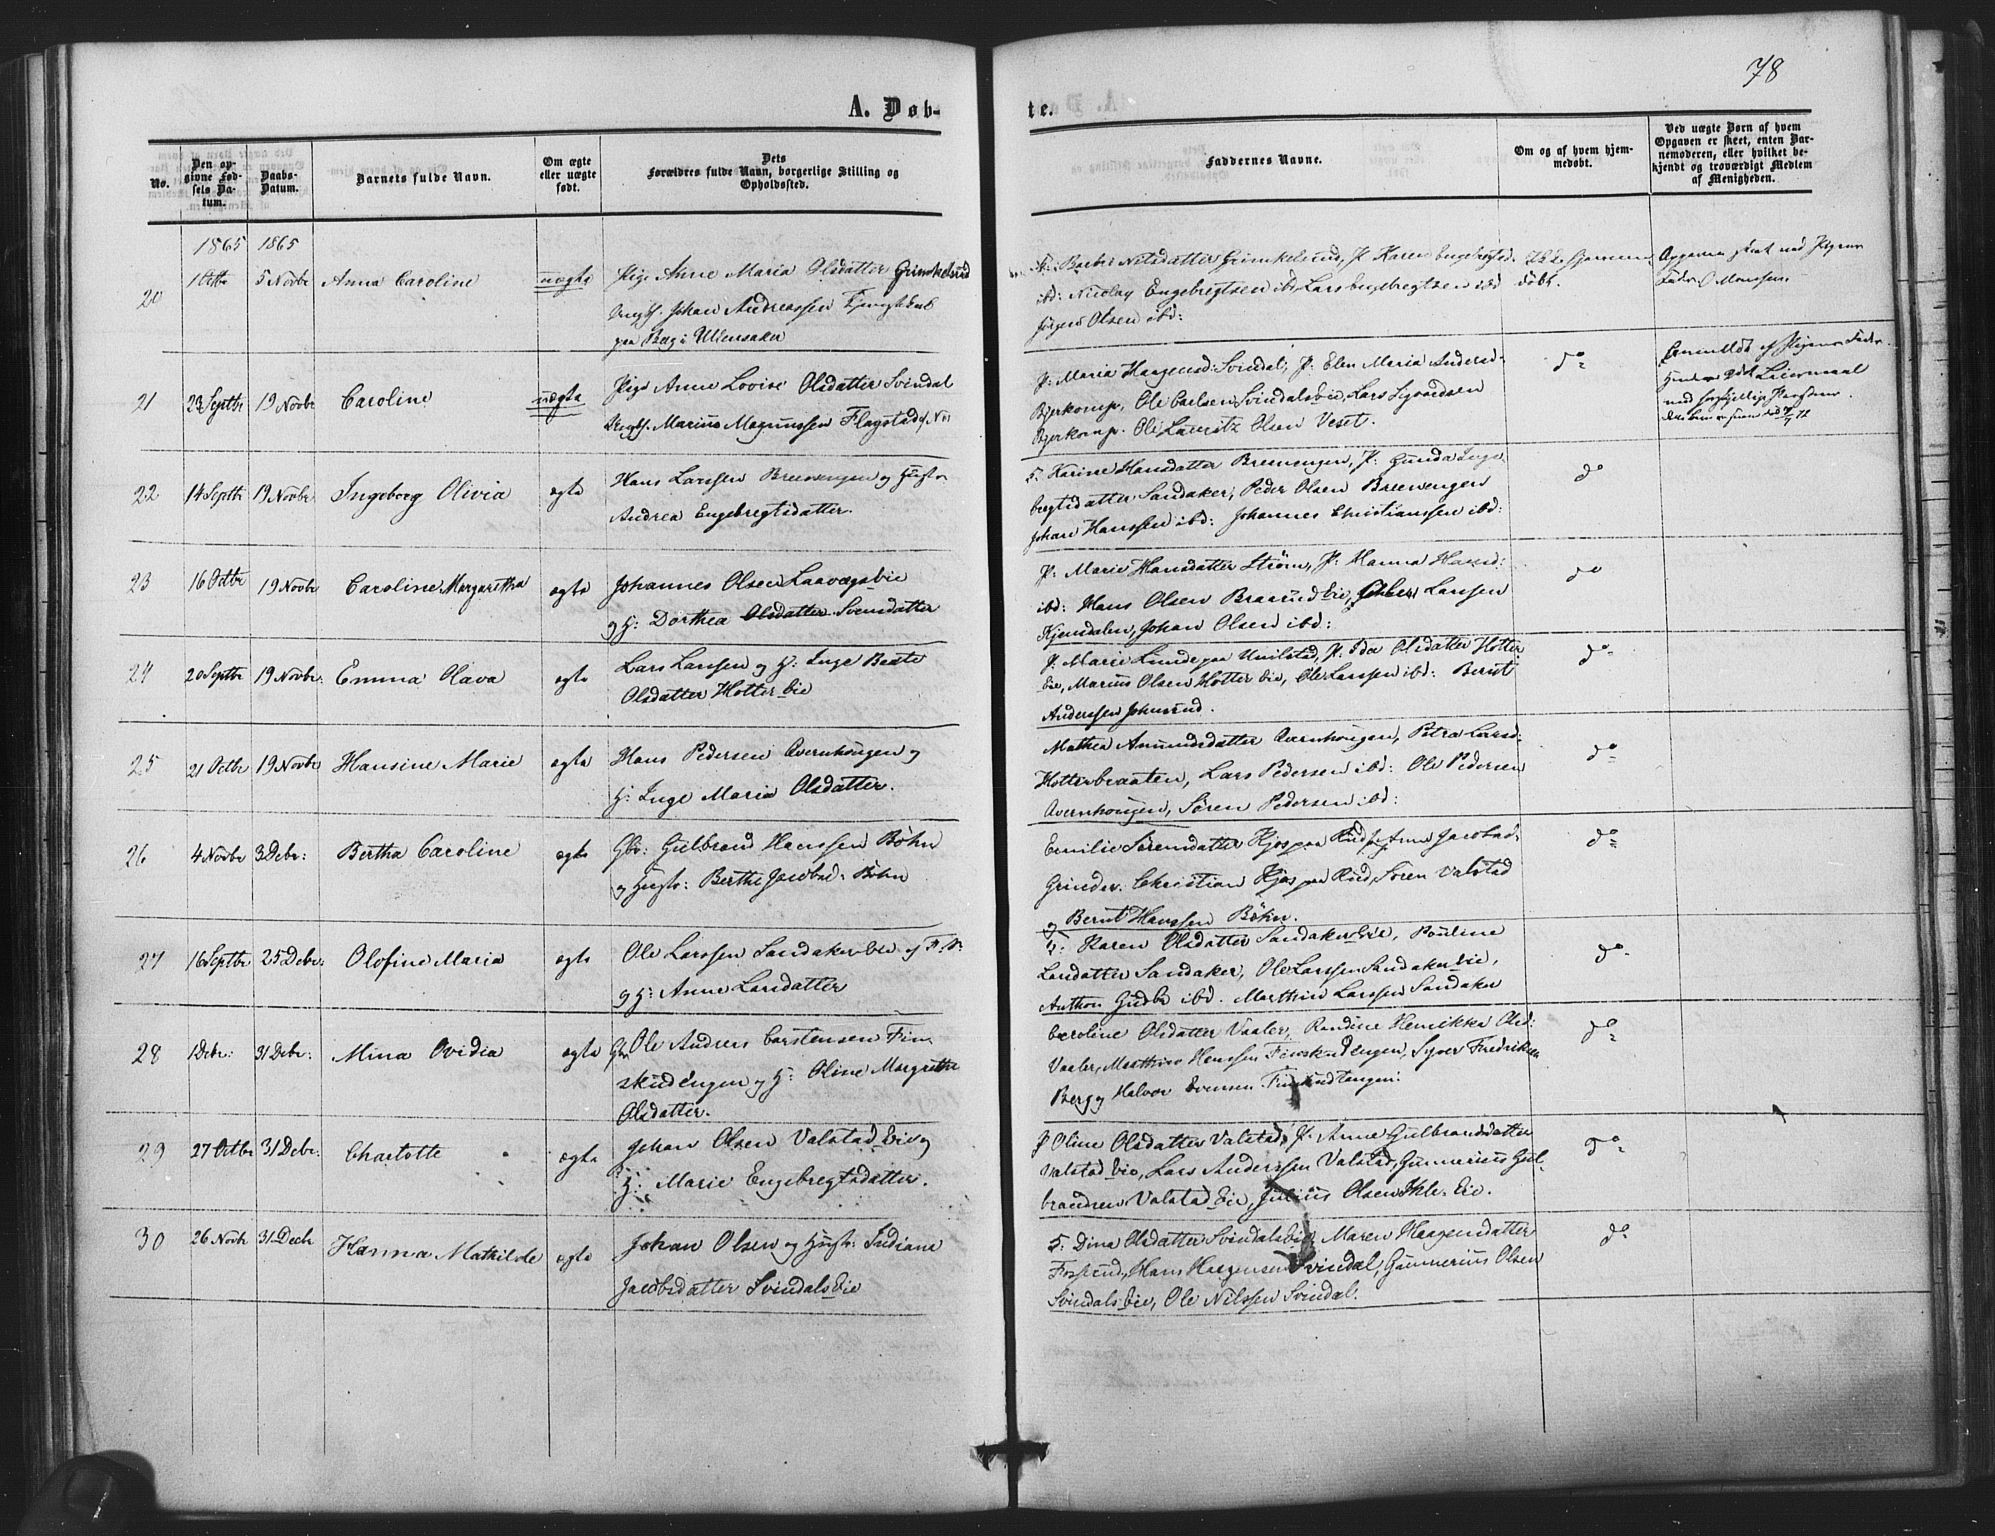 78
A. Døb-
te.
No.
Den op-
givne Fød-
sels Da-
tum.
Daabs-
Datum.
Barnets fulde Navn.
Om ægte
eller uægte
født.
Dets
Forældres fulde Navn, borgerlige Stilling og
Opholdssted.
Faddernes Navne.
Om og af hvem hjem-
medøbt.
Ved uægte Børn af hvem
Opgaven er skeet, enten Bar-
nemoderen, eller hvilket be-
kjendt og troværdigt Medlem
af Menigheden.
1865 1865
20 1 5 Novbr Anna Caroline uægte
Pige Anne Maria Olsdatter Grimkelsrud
Ungk. Johan Andreassen
paa Berg i Ullensaker
Nilsdatter Grimkelsrud, P. Karen Engebregtsd.
ibd: Nicolay Engebregtsen ibd, Lars Engebregtsen ibd
Jørgen Olsen ibd:
døbt.
Opgaven skeet ved Pigens
Fader O Monsen
21 23 Septbr 19 Novbr Caroline uægte
Pige Anne Lovise Olsdatter Svindal
Ungk. Marius Magnussen Flagstad
P: Maria Haagensd: Svindal, P: Elen Maria Andersd.
Bjerkomp, Ole Carlsen Svindalseie, Lars Sigvardsen
Bjerkomp. Ole Lauritz Olsen Veset.
do
22 14 Septbr 19 Novbr Ingeborg Olivia ægte
Hans Larssen Breevengen og Hustr.
Andrea Engebregtsdatter.
5. Karine Hansdatter Breevengen, P: Gunda Inge-
bregtsdatter Sandaker, Peder Olsen Breevengen
Johan Hanssen ibd: Johannes Christianssen ibd:
do
23 16 Octbr 19 Novbr Caroline Margaretha ægte
Johannes Olsen Laavegseie
og H: Dorthea Olsdatter Svensdatter
P: Marie Hansdatter Strøm, P: Hanna Hansd:
ibd: Hans Olsen Braarudeie, Larssen
Kjensdalen, Johan Olsen ibd:
do
24 20 Septbr 19 Novbr: Emma Olava ægte
Lars Larssen og H: Inge Beate
Olsdatter Hotter Eie
P: Marie Lundepaa Umilstad, P. Ida Olsdatter Hotter
Eie, Marius Olsen Hotter Eie, Ole Larssen ibd: Bernt
Anderssen Johnsrud.
do
25 21 Octbr 19 Novbr Hansine Marie ægte
Hans Pedersen Overnhougen og
H: Inge Maria Olsdatter.
Mathea Amundsdatter Overnhougen, Petra Larsd:
Hotterbraaten, Lars Pedersen ibd: Ole Pedersen
Overnhougen, Søren Pedersen ibd:
do
26 4 Novbr 3 Debr: Bertha Caroline ægte
Gbr: Gulbrand Hanssen Bøhn
og Hustr: Berthe Jacobsd: Bøhn
Emilie Sørensdatter Kjos paa Rud, P. Anne Jacobsd.
Grinder. Christian Kjos paa Rud, Søren Valstad
og Bernt Hanssen Bøhn.
do
27 16 Septbr 25 Debr: Olofine Maria ægte
Ole Larssen Sandaker Eie
og H: Anne Larsdatter
4: Karen Olsdatter Sandaker Eie, Pauline
Larsdatter Sandaker, Ole Larssen Sandaker Eie,
Anthon Gudbr ibd. Marthin Larssen Sandaker
do
28 1 Debr: 31 Debr: Mina Ovidia ægte
Gbr Ole Andreas Carstensen Fin-
skudengen og H: Oline Margrethe
Olsdatter.
Caroline Olsdatter Vaaler, Randine Henrikka Olsd:
Vaaler, Matthias Hanssen Finskudengen, Syver Fredriksen
Berg og Halvor Evensen Finskudtangen:
do
29 27 Octbr 31 Debr: Charlotte ægte
Johan Olsen Valstad Eie og
H: Marie Engebregtsdatter.
P Oline Olsdatter Valstad, P. Anne Gulbrandsdatter
Valstad Eie, Lars Anderssen Valstad, Gunnerius Gul-
brandsen Valstad Eie, Julius Olsen Ihle Eie.
do
30 26 Novbr 31 Decbr Hanna Mathilde ægte
Johan Olsen og Hustr: Indiane
Jacobsdatter Svindals Eie
5: Dina Olsdatter Svindals Eie, Maren Haagensdatter
Fosserud, Hans Haagensen Svindal, Gunnerius Olsen
Svindals Eie, Ole Nilssen Svindal.
do